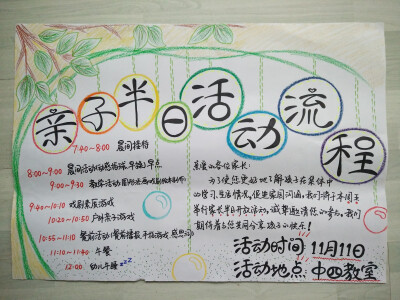 亲子半日活动流程
7:40-8:00 晨间接待
8:00-9:00 晨间活动
9:00-9:30
9:40-10:10 戏剧表演游戏
10:20-10:50 户外亲子游戏
10:55-11:10 餐前活动
11:10-11:40 午餐
12:00 幼儿午睡 zzz
亲爱的各位家长:
为了使您更好地了解孩子在集体中
的学习、生活情况,促进家园沟通,我们将于本周五
举行家长半日开放活动,诚挚邀请您的参加,我们
期待着与您共同分享孩子的快乐!
活动时间:11月11日
活动地点:中四教室